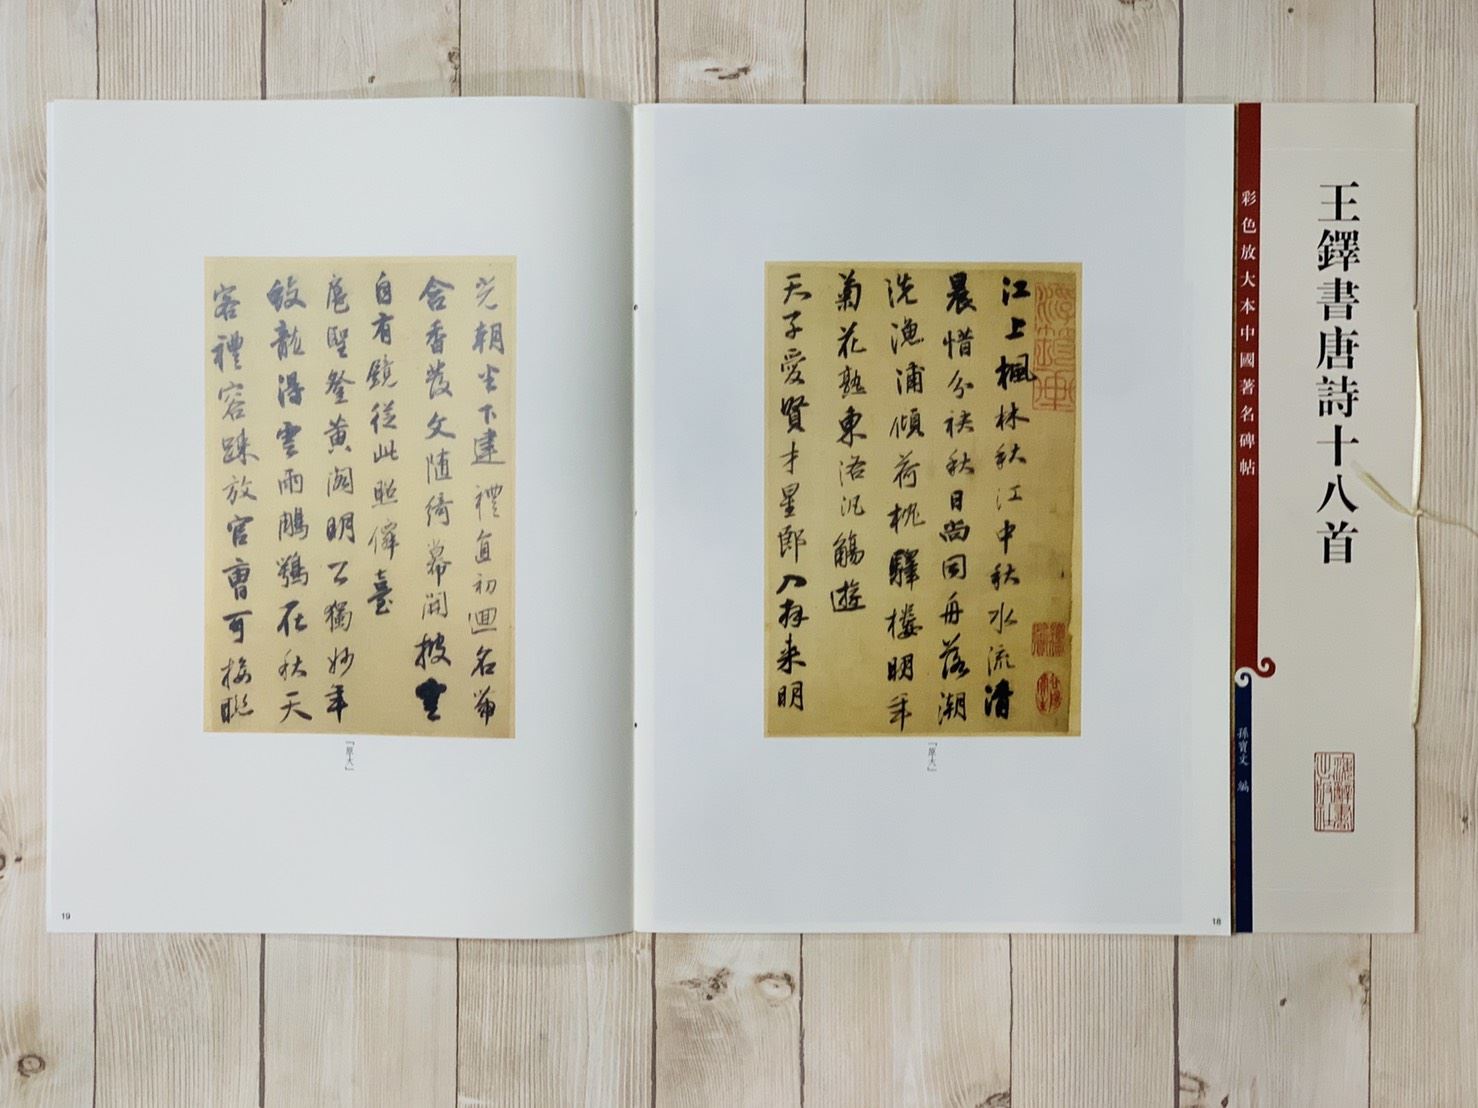 王鐸書唐詩十八首
彩色放大本中國著名碑帖
孫寶文 編
江上楓林秋江中秋水流清
晨惜分袂秋日尚同舟落潮
洗漁浦傾荷枕驛樓明年
菊花熟東洛汎觴遊
天子愛賢才星郎入拜来明
「原大」
18
光朝半下建禮直初迴名帶
含香發文隨綺幕開披雲
自有鏡從此照僊臺
扈聖登黃閣明公獨妙年
蛟龍得雲雨鵰鶚在秋天
客禮容踈放官曹可接聯
「原大」
19